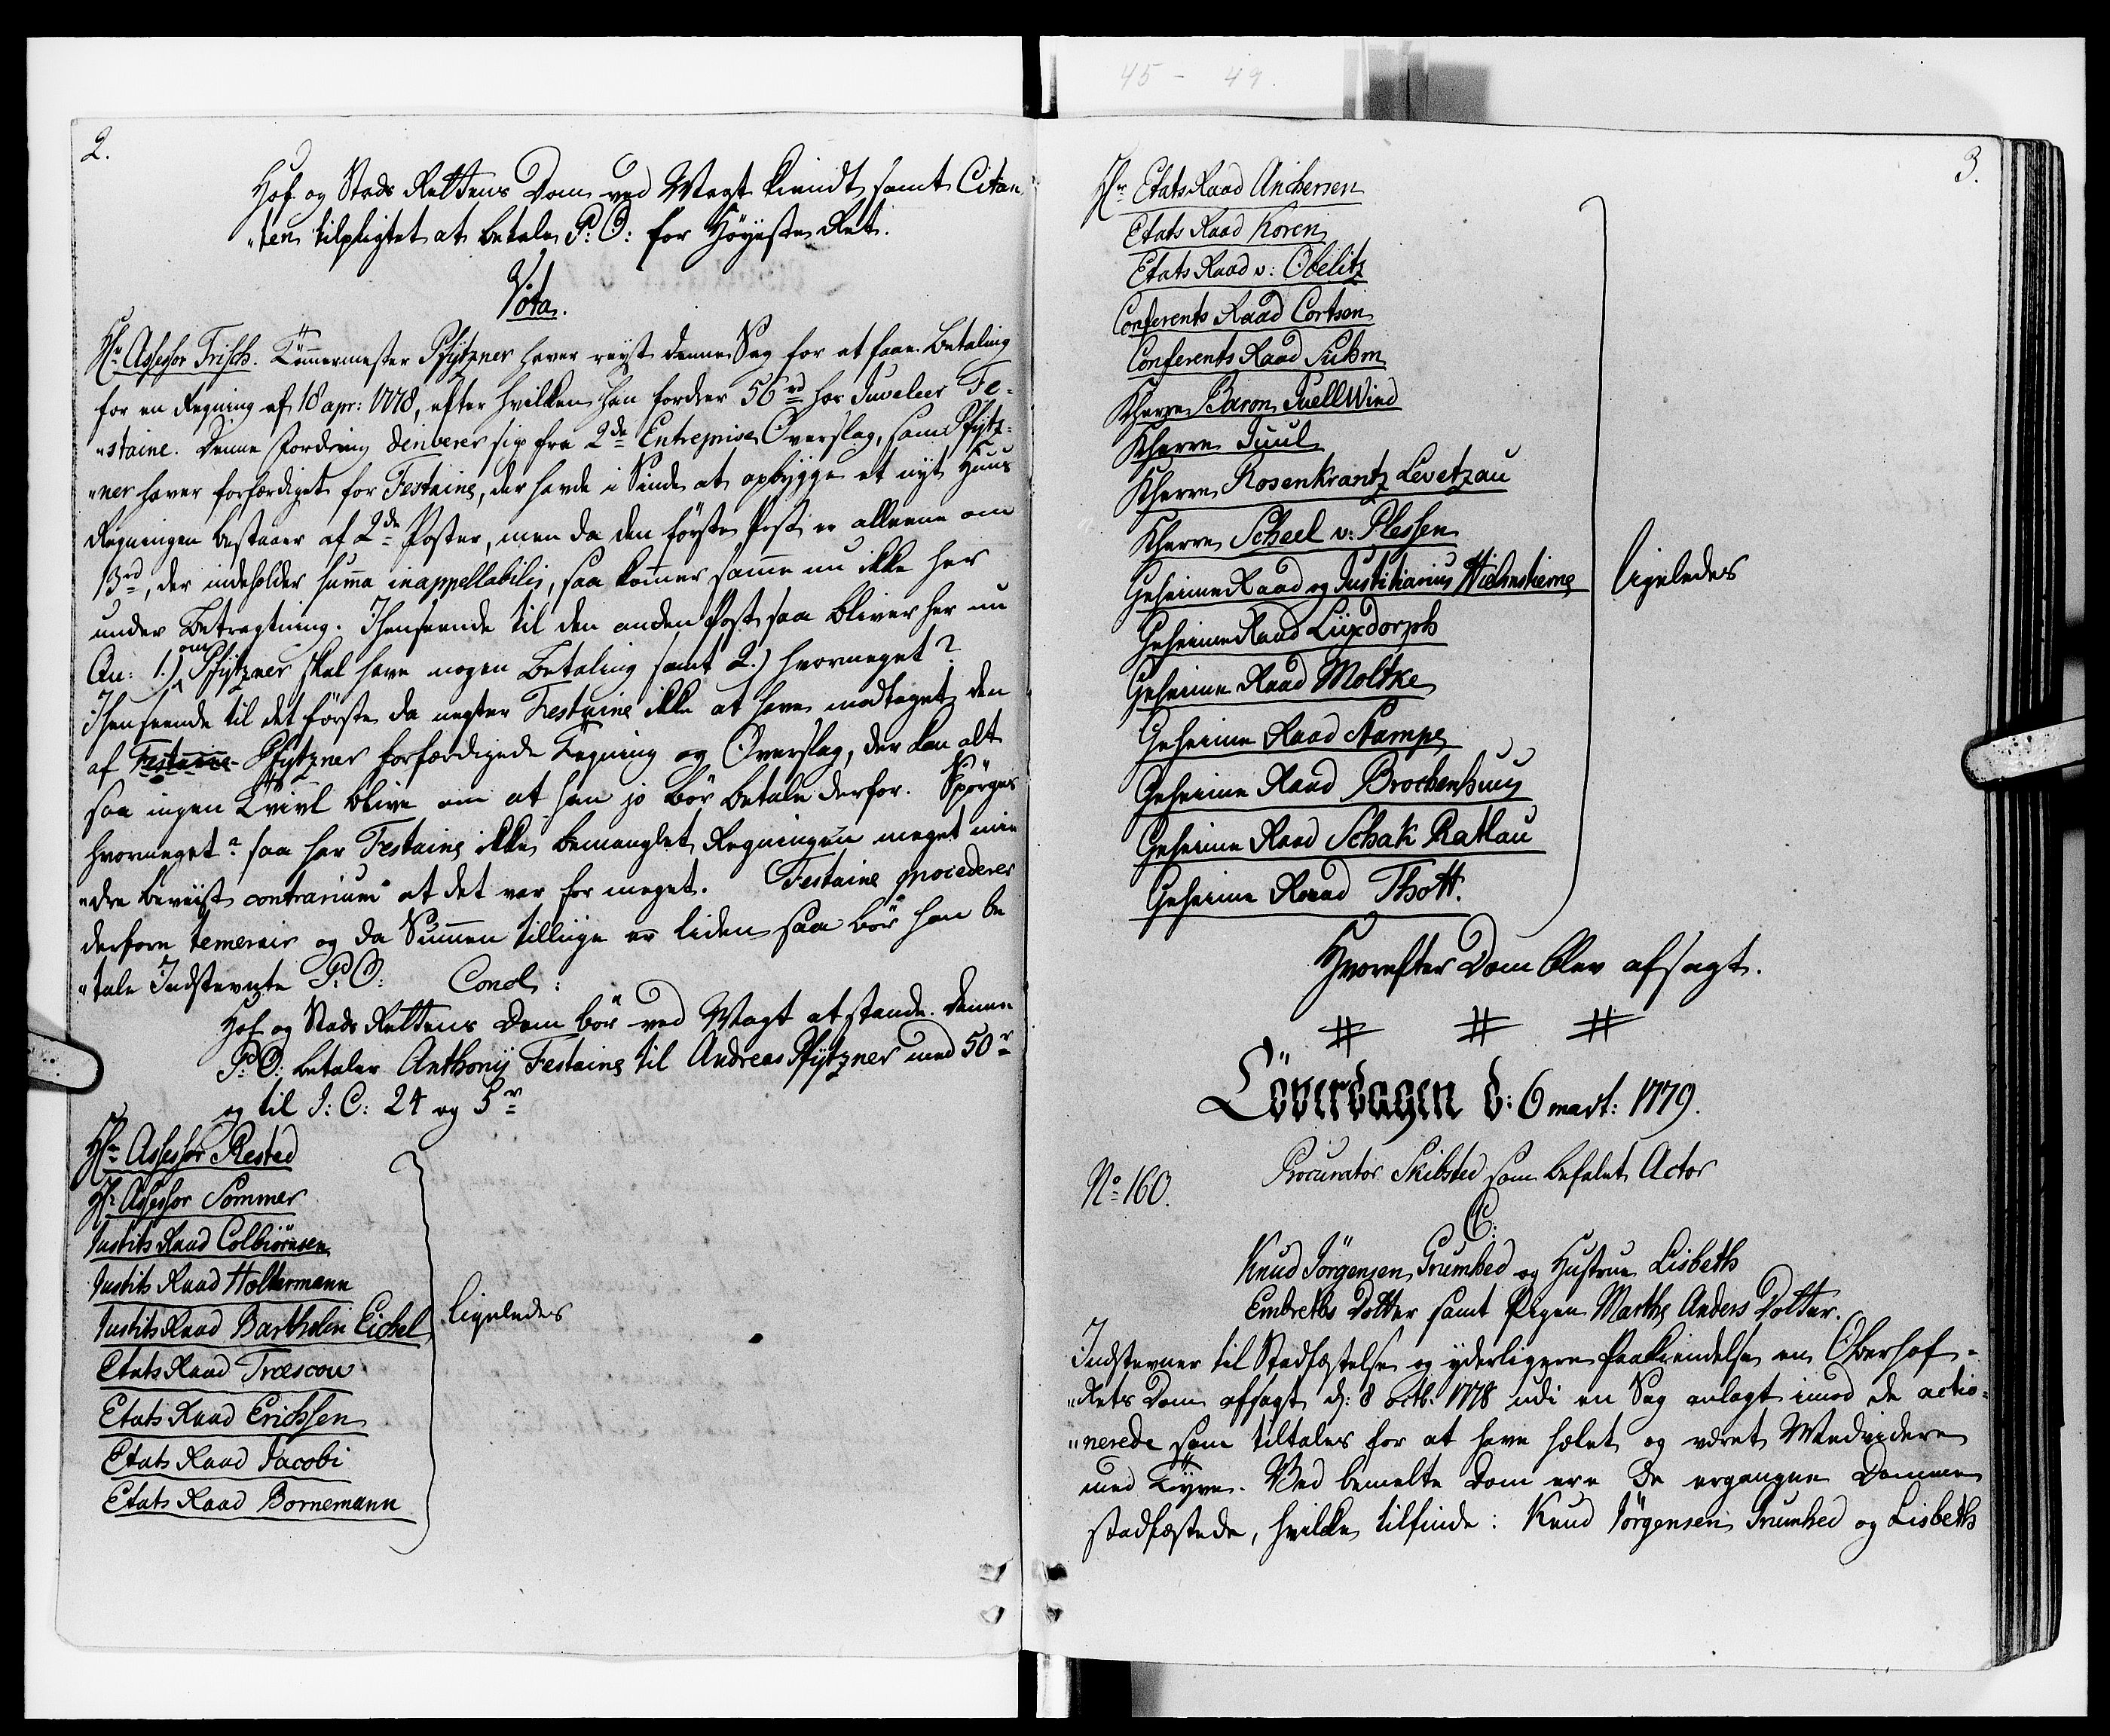 45 - 49.
2.
Hof og Stads Rettens Dom ved Magt kiendt samt Citan
"ten tilpligtet at betale P: O: for Höyeste Ret.
Vota.
Hr. Assessor Frisch. Tömmermester Pfützner haver reyst denne Sag for at faae Betaling
for en Regning af 18 apr: 1778, efter hvilken han fordrer 56 rd hos Juveleer Fe-
"staine. Denne Fordring deriverer sig fra 2de Entreprise Overslag, som Pfütz-
"ner haver forfærdiget for Festaine, der havde i Sinde at opbygge et nyt Huus
Regningen bestaaer af 2de Poster, men da den förste Post er alleene om
13 rd, der indeholder summa inappellabilis, saa kommer samme nu ikke her
under Betragtning. Ihenseende til den anden Post saa bliver her nu
Qu: 1.) om Pfützner skal have nogen Betaling samt 2.) hvormeget?
Ihenseende til det förste da negter Festaine ikke at have modtaget den
af Festaine Pfützner forfærdigede Tegning og Overslag, der kan alt
saa ingen Tvivl blive om at han jo bör betale derfor. Spörges
hvormeget? saa har Festaine ikke bemanglet Regningen meget min
"dre beviist contrarium at det var for meget. Festaine procederer
derfore temerair og da Summen tillige er liden saa bör han be
"tale Indstevnte P: O: Concl:
Hof og Stads Rettens Dom bör ved Magt at stande. Denne
P: O: betaler Anthonij Festaine til Andreas Pfützner med 50 r
og til J: C: 24 og 5 r
Hr. Assessor Rested
Hr. Assessor Sommer
Justits Raad Colbiörnsen
Justits Raad Holtermann
Justits Raad Bartholin Eichel
Etats Raad Træscow
Etats Raad Erichsen
Etats Raad Jacobi
Etats Raad Bornemann
ligeledes
3.
Hr. Etats Raad Anchersen
Etats Raad Koren
Etats Raad v: Obelitz
Conferents Raad Cortsen
Conferents Raad Suhm
Kherre Baron Juell Wind
Kherre Juul
Kherre Rosenkrantz Levetzau
Kherre Scheel v: Plessen
Geheime Raad og Justitiarius Hielmstierne
Geheime Raad Luxdorph
Geheime Raad Moltke
Geheime Raad Stampe
Geheime Raad Brockenhuus
Geheime Raad Schak Ratlau
Geheime Raad Thott.
ligeledes
Hvorefter Dom blev afsagt.
# # #
Löverdagen d: 6 mart: 1779.
No. 160. Procurator Skibsted som befalet Actor
C:
Knud Jörgensen Grumhed og Hustrue Lisbeth
Embreths Dotter samt Pigen Marthe Anders Dotter.
Indstevner til Stadfæstelse og yderligere Paakiendelse en Oberhof-
"Rets Dom afsagt d: 8 octb: 1778 udi en Sag anlagt imod de actio-
"nerede som tiltales for at have hælet og været Medvidere
med Tyve. Ved bemelte Dom ere de ergangne Domme
stadfæstede, hvilke tilfinde: Knud Jörgensen Grumhed og Lisbeth